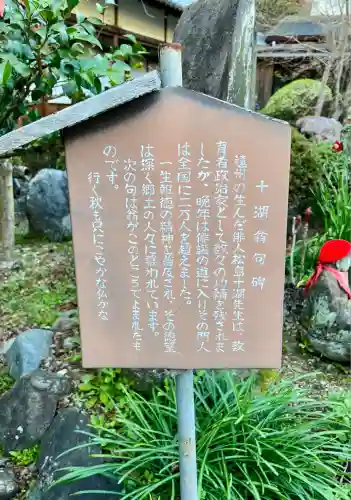 十湖翁句碑
遠州の生んだ俳人松島十湖先生は、教
育者政治家として数々の功績を残しま
したが、晩年は俳諧の道に入りその門人
は全国に二万人を数えています。
一生報徳の精神を普及され、その遺業
は深く郷土の人々に慕われています。
次の句は翁がこのところでよまれたも
のです。
行く秋も只にこやかな仏かな